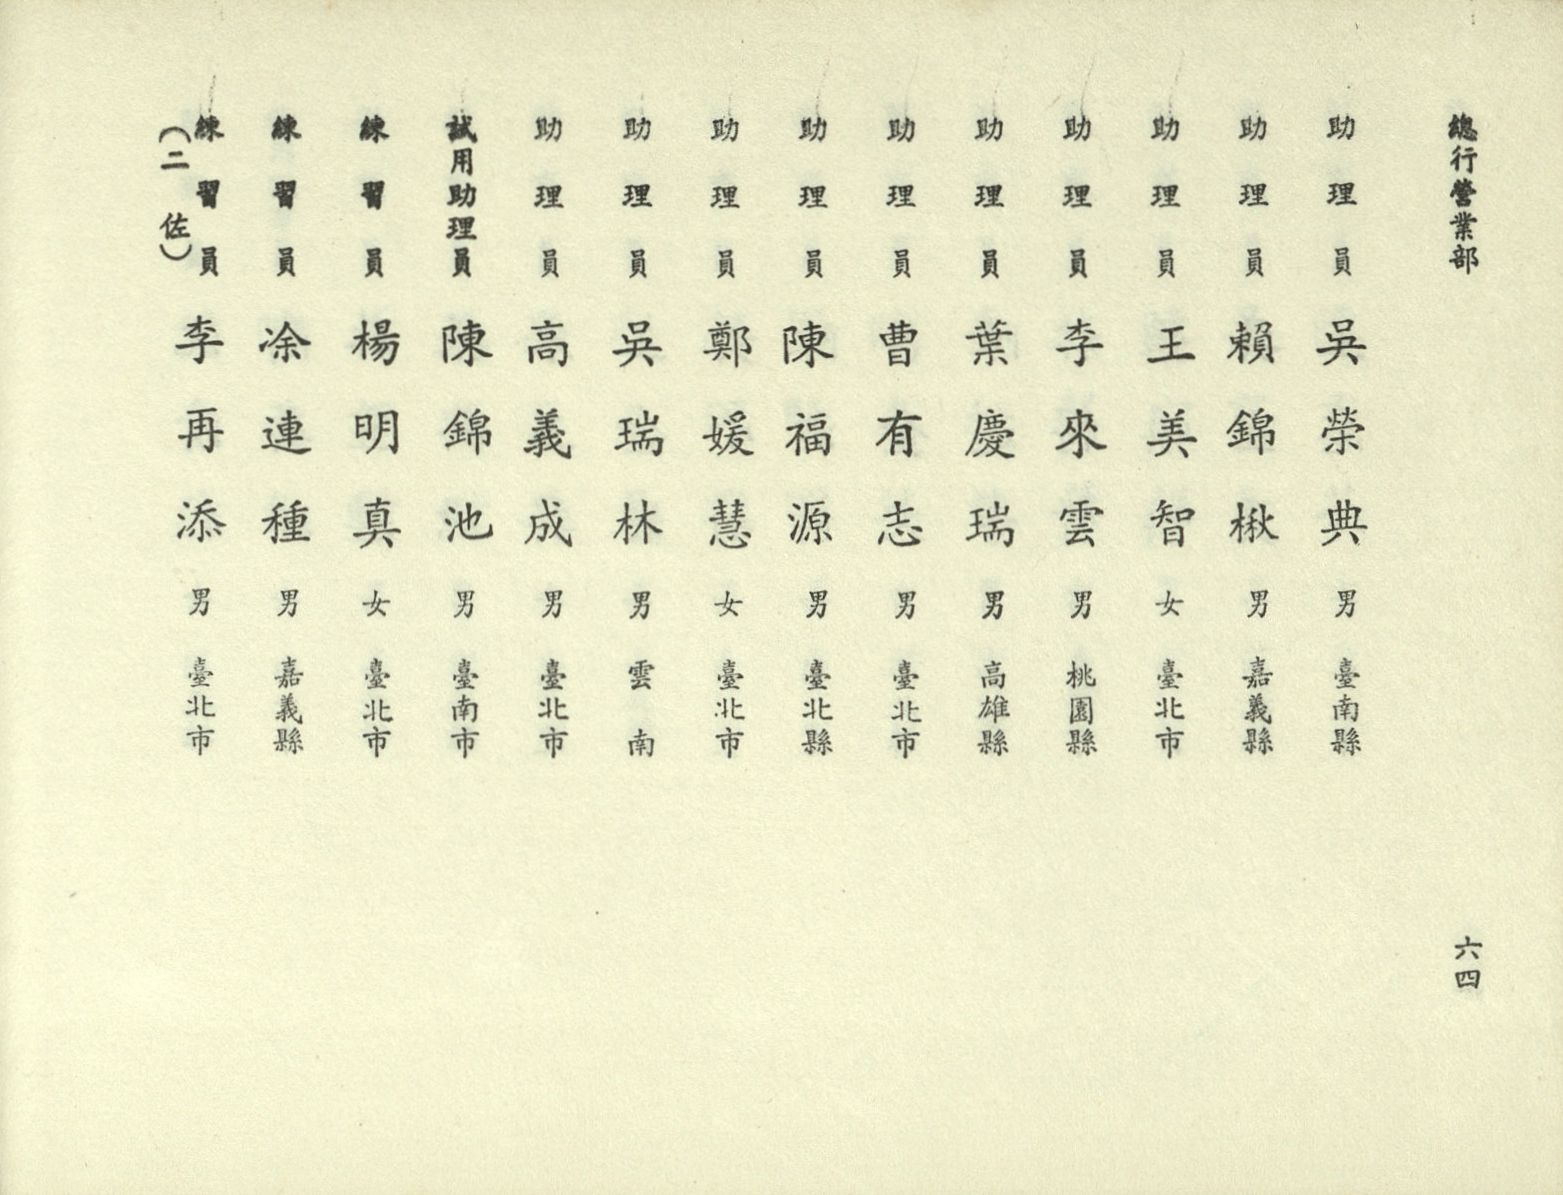 總行營業部
六四
助理員 吳榮典 男 臺南縣
助理員 賴錦楸 男 嘉義縣
助理員 王美智 女 臺北市
助理員 李來雲 男 桃園縣
助理員 葉慶瑞 男 高雄縣
助理員 曹有志 男 臺北市
助理員 陳福源 男 臺北縣
助理員 鄭媛慧 女 臺北市
助理員 吳瑞林 男 雲南
助理員 高義成 男 臺北市
試用助理員 陳錦池 男 臺南市
練習員 楊明真 女 臺北市
練習員 凃連種 男 嘉義縣
練習員 李再添 男 臺北市
(二佐)